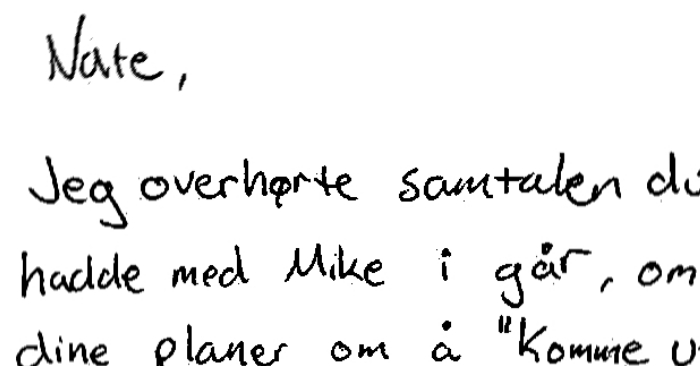 Nate,
Jeg overhørte samtalen du
hadde med Mike i går, om
dine planer om å "Komme